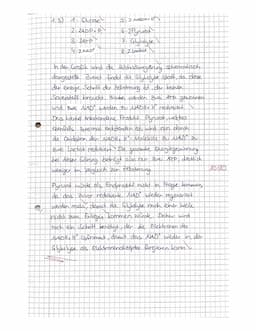 1.3) 1. Glucose 5. 2 NADH+H⁺
2. 2ADP+Pᵢ 6. 2 Pyruvat
3. 2ATP 7. Glykolyse
4. 2 NAD⁺ 8. 2 Lactat
In der Grafik wird die Milchsäuregärung schematisch
dargestellt. Zuerst findet die Glykolyse statt, da diese
der einzige Schritt der Zellatmung ist, der keinen
Sauerstoff braucht. Hierbei werden zwei ATP gewonnen
und zwei NAD⁺ werden zu NADH+H⁺ reduziert.
Das letzte entstehende Produkt Pyruvat, welches
ebenfalls zweimal entstanden ist, wird nun durch
die Oxidation der NADH+H⁺ Moleküle zu NAD⁺ zu
zwei Lactat reduziert. Die gesamte Energiegewinnung
bei dieser Gärung beträgt also nur zwei ATP, deutlich
weniger im Vergleich zur Zellatmung.
Pyruvat würde als Endprodukt nicht in Frage kommen,
da das zuvor reduzierte NAD⁺ wieder regeneriert
werden muss, damit die Glykolyse nach einer Weile
nicht zum Erliegen kommen würde. Daher wird
noch ein Schritt benötigt, der die Elektronen des
NADH+H⁺ aufnimmt, damit das NAD⁺ wieder in der
Glykolyse als Elektronenakzeptor fungieren kann.